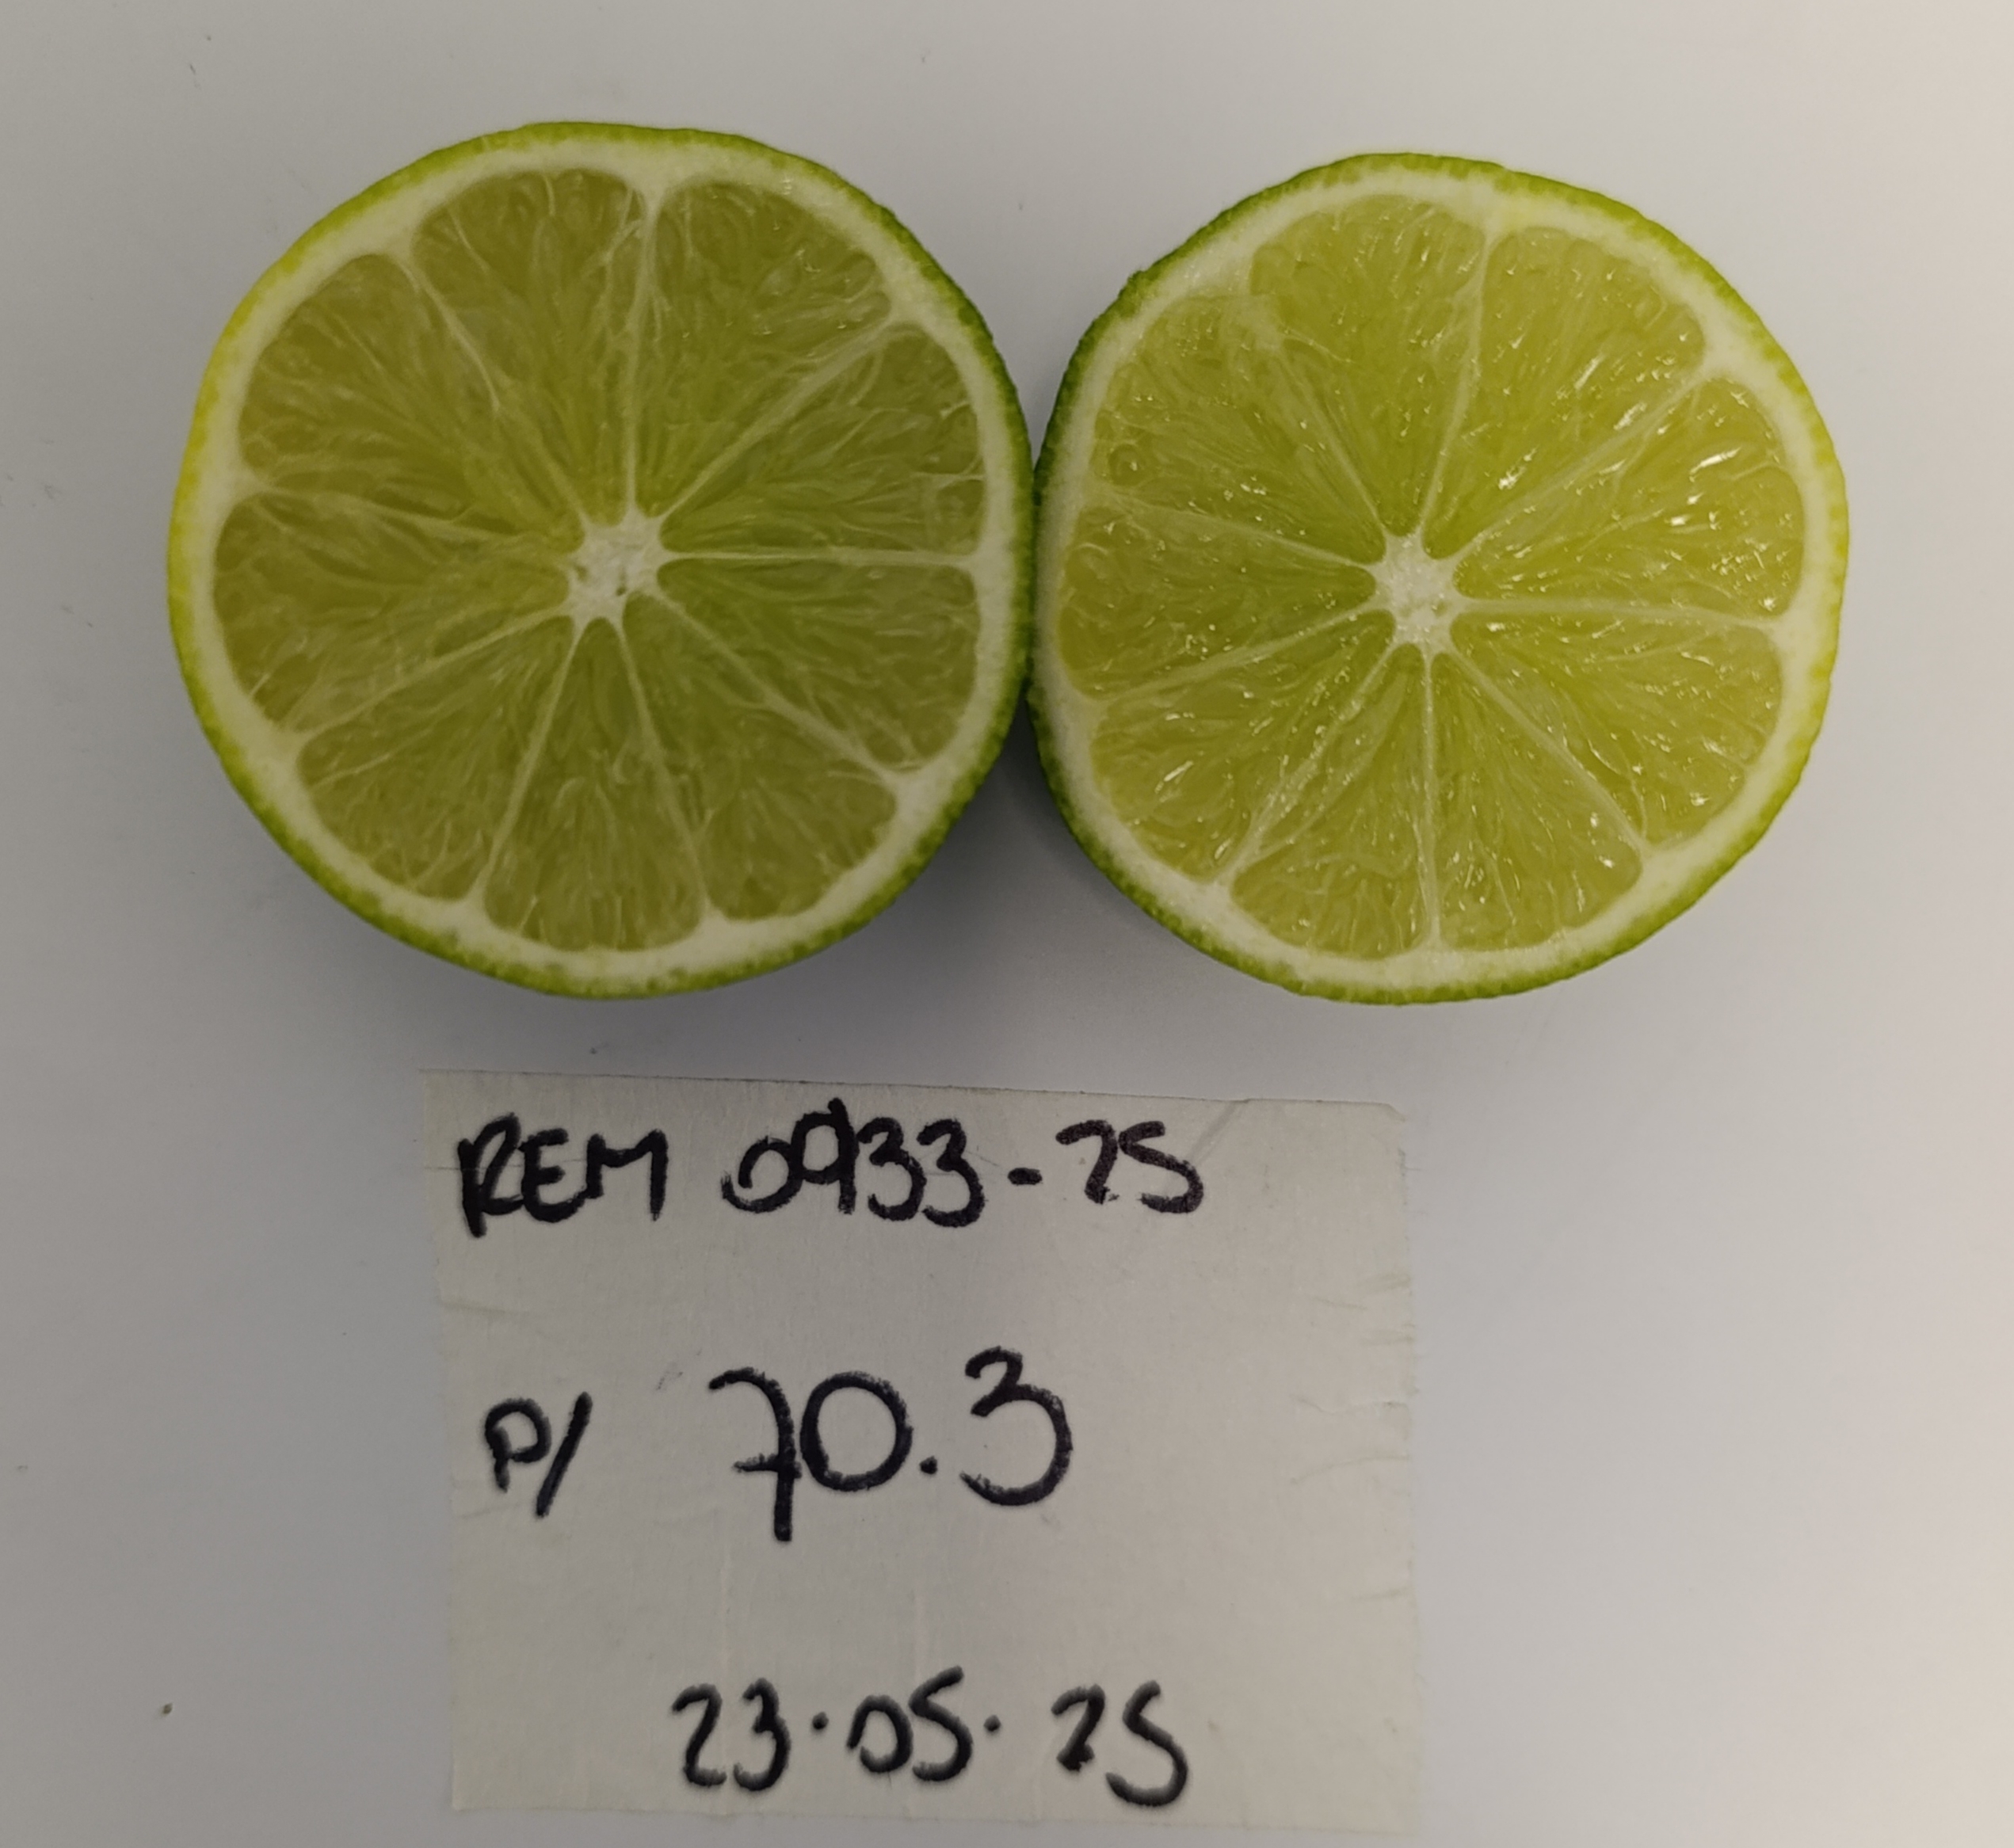 REM 0933-25
P/ 70.3
23.05.25